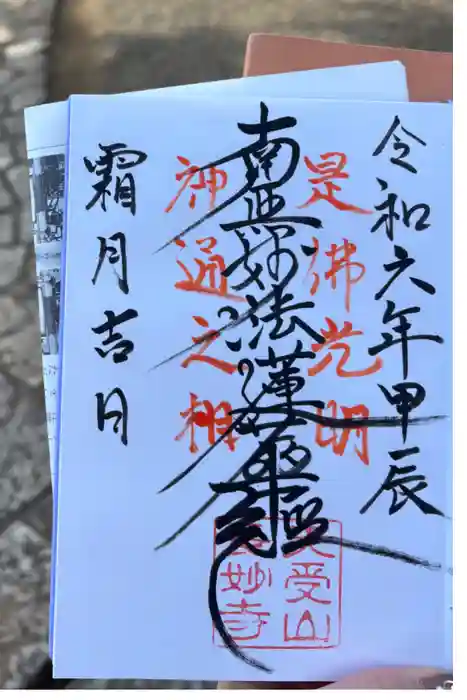 令和六年甲辰
是佛光明
南無妙法蓮華經
神通之相
霜月吉日
受山
妙寺